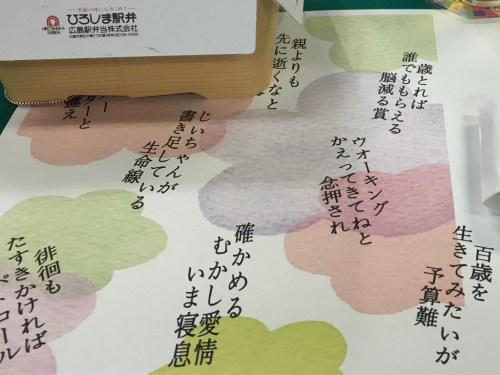 季節の味に心をこめて
ひろしま駅弁
広島駅弁当株式会社
HIROSHIMA
EKIBEN
親よりも
先に逝くなと
歳とれば
誰でももらえる
脳減る賞
じいちゃんが
書き足している
生命線
ウオーキング
かえってきてねと
念押され
百歳を
生きてみたいが
予算難
確かめる
むかし愛情
いま寝息
徘徊も
たすきかければ
パトロール